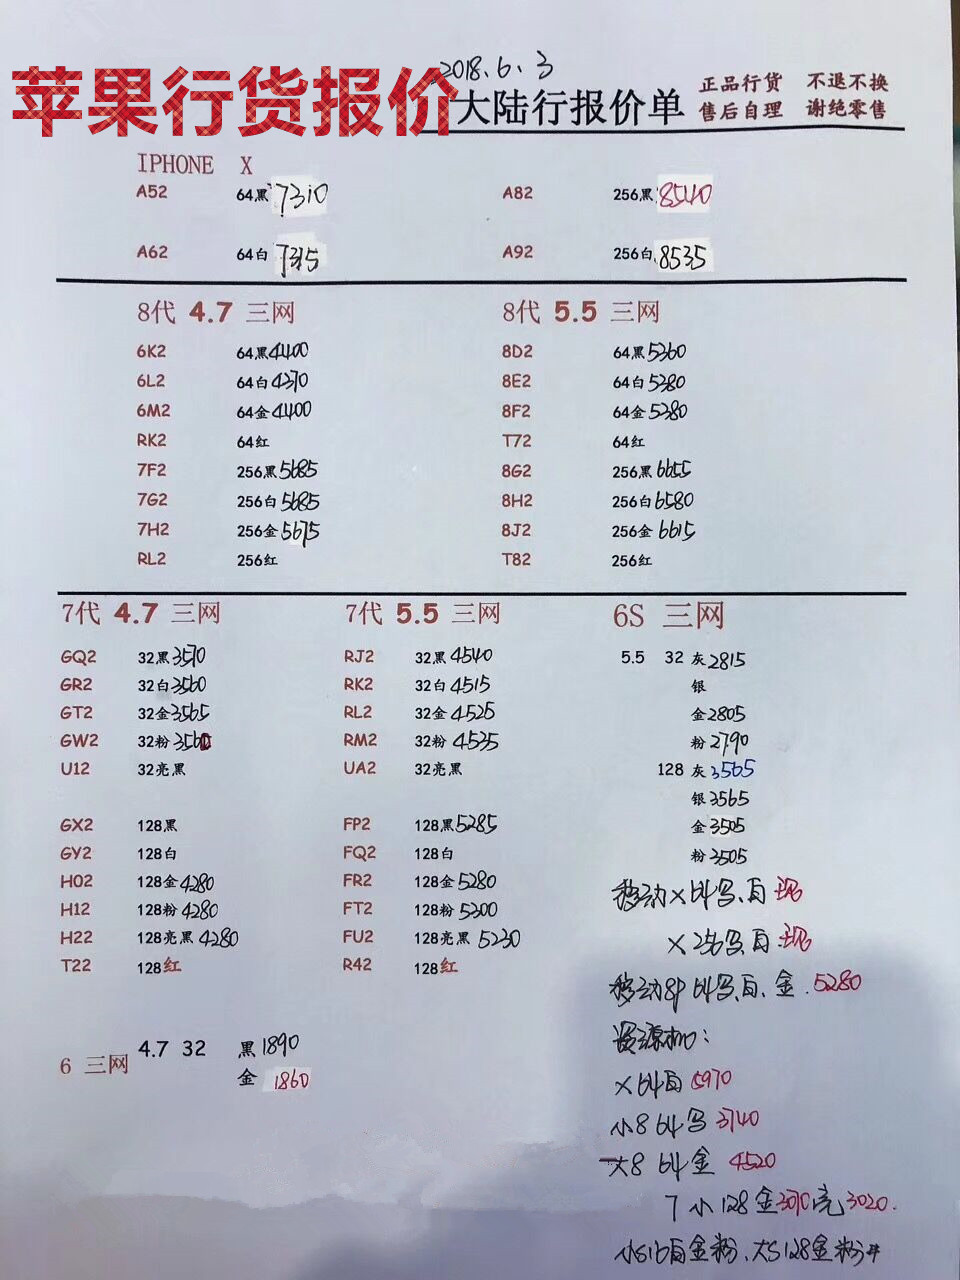 苹果行货报价
2018.6.3
大陆行报价单 正品行货 不退不换
售后自理 谢绝零售
IPHONE X
A52 64黑 7310 A82 256黑 8540
A62 64白 7315 A92 256白 8535
8代 4.7 三网 8代 5.5 三网
6K2 64黑 4400 8D2 64黑 5360
6L2 64白 4370 8E2 64白 5380
6M2 64金 4400 8F2 64金 5380
RK2 64红 T72 64红
7F2 256黑 5685 8G2 256黑 6655
7G2 256白 5685 8H2 256白 6580
7H2 256金 5675 8J2 256金 6615
RL2 256红 T82 256红
7代 4.7 三网 7代 5.5 三网 6S 三网
GQ2 32黑 3570 RJ2 32黑 4540 5.5 32 灰 2815
GR2 32白 3560 RK2 32白 4515 银
GT2 32金 3565 RL2 32金 4525 金 2805
GW2 32粉 3560 RM2 32粉 4535 粉 2790
U12 32亮黑 UA2 32亮黑 128 灰 3565
银 3565
GX2 128黑 FP2 128黑 5285 金 3505
GY2 128白 FQ2 128白 粉 3505
H02 128金 4280 FR2 128金 5280
H12 128粉 4280 FT2 128粉 5300
H22 128亮黑 4280 FU2 128亮黑 5230
T22 128红 R42 128红
移动X 64黑、白 现
X 256黑、白 现
移动8P 64黑、白、金. 5280
资源机:
6 三网 4.7 32 黑 1890
金 1860
X 64白 5970
小8 64黑 3740
大8 64金 4520
7小128金 3070 亮 3020.
小S16白金粉、大S128金粉